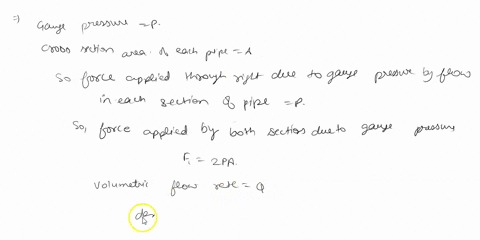 =) Gauge pressure = P.
Cross section area of each pipe = A
So force applied through right due to gauge pressure by flow
in each section of pipe = P.
So, force applied by both section due to gauge pressure
F₁ = 2PA.
Volumetric flow rate = Q